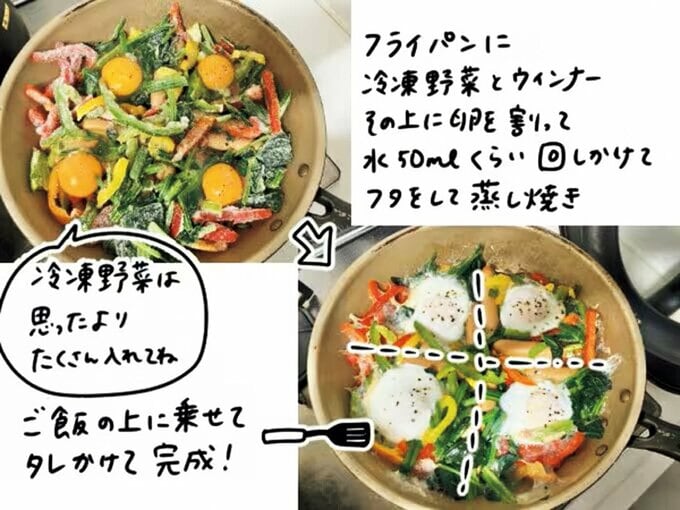 フライパンに
冷凍野菜とウインナー
その上に卵を割って
水50mlくらい回しかけて
フタをして蒸し焼き
冷凍野菜は
思ったより
たくさん入れてね
ご飯の上に乗せて
タレかけて完成!